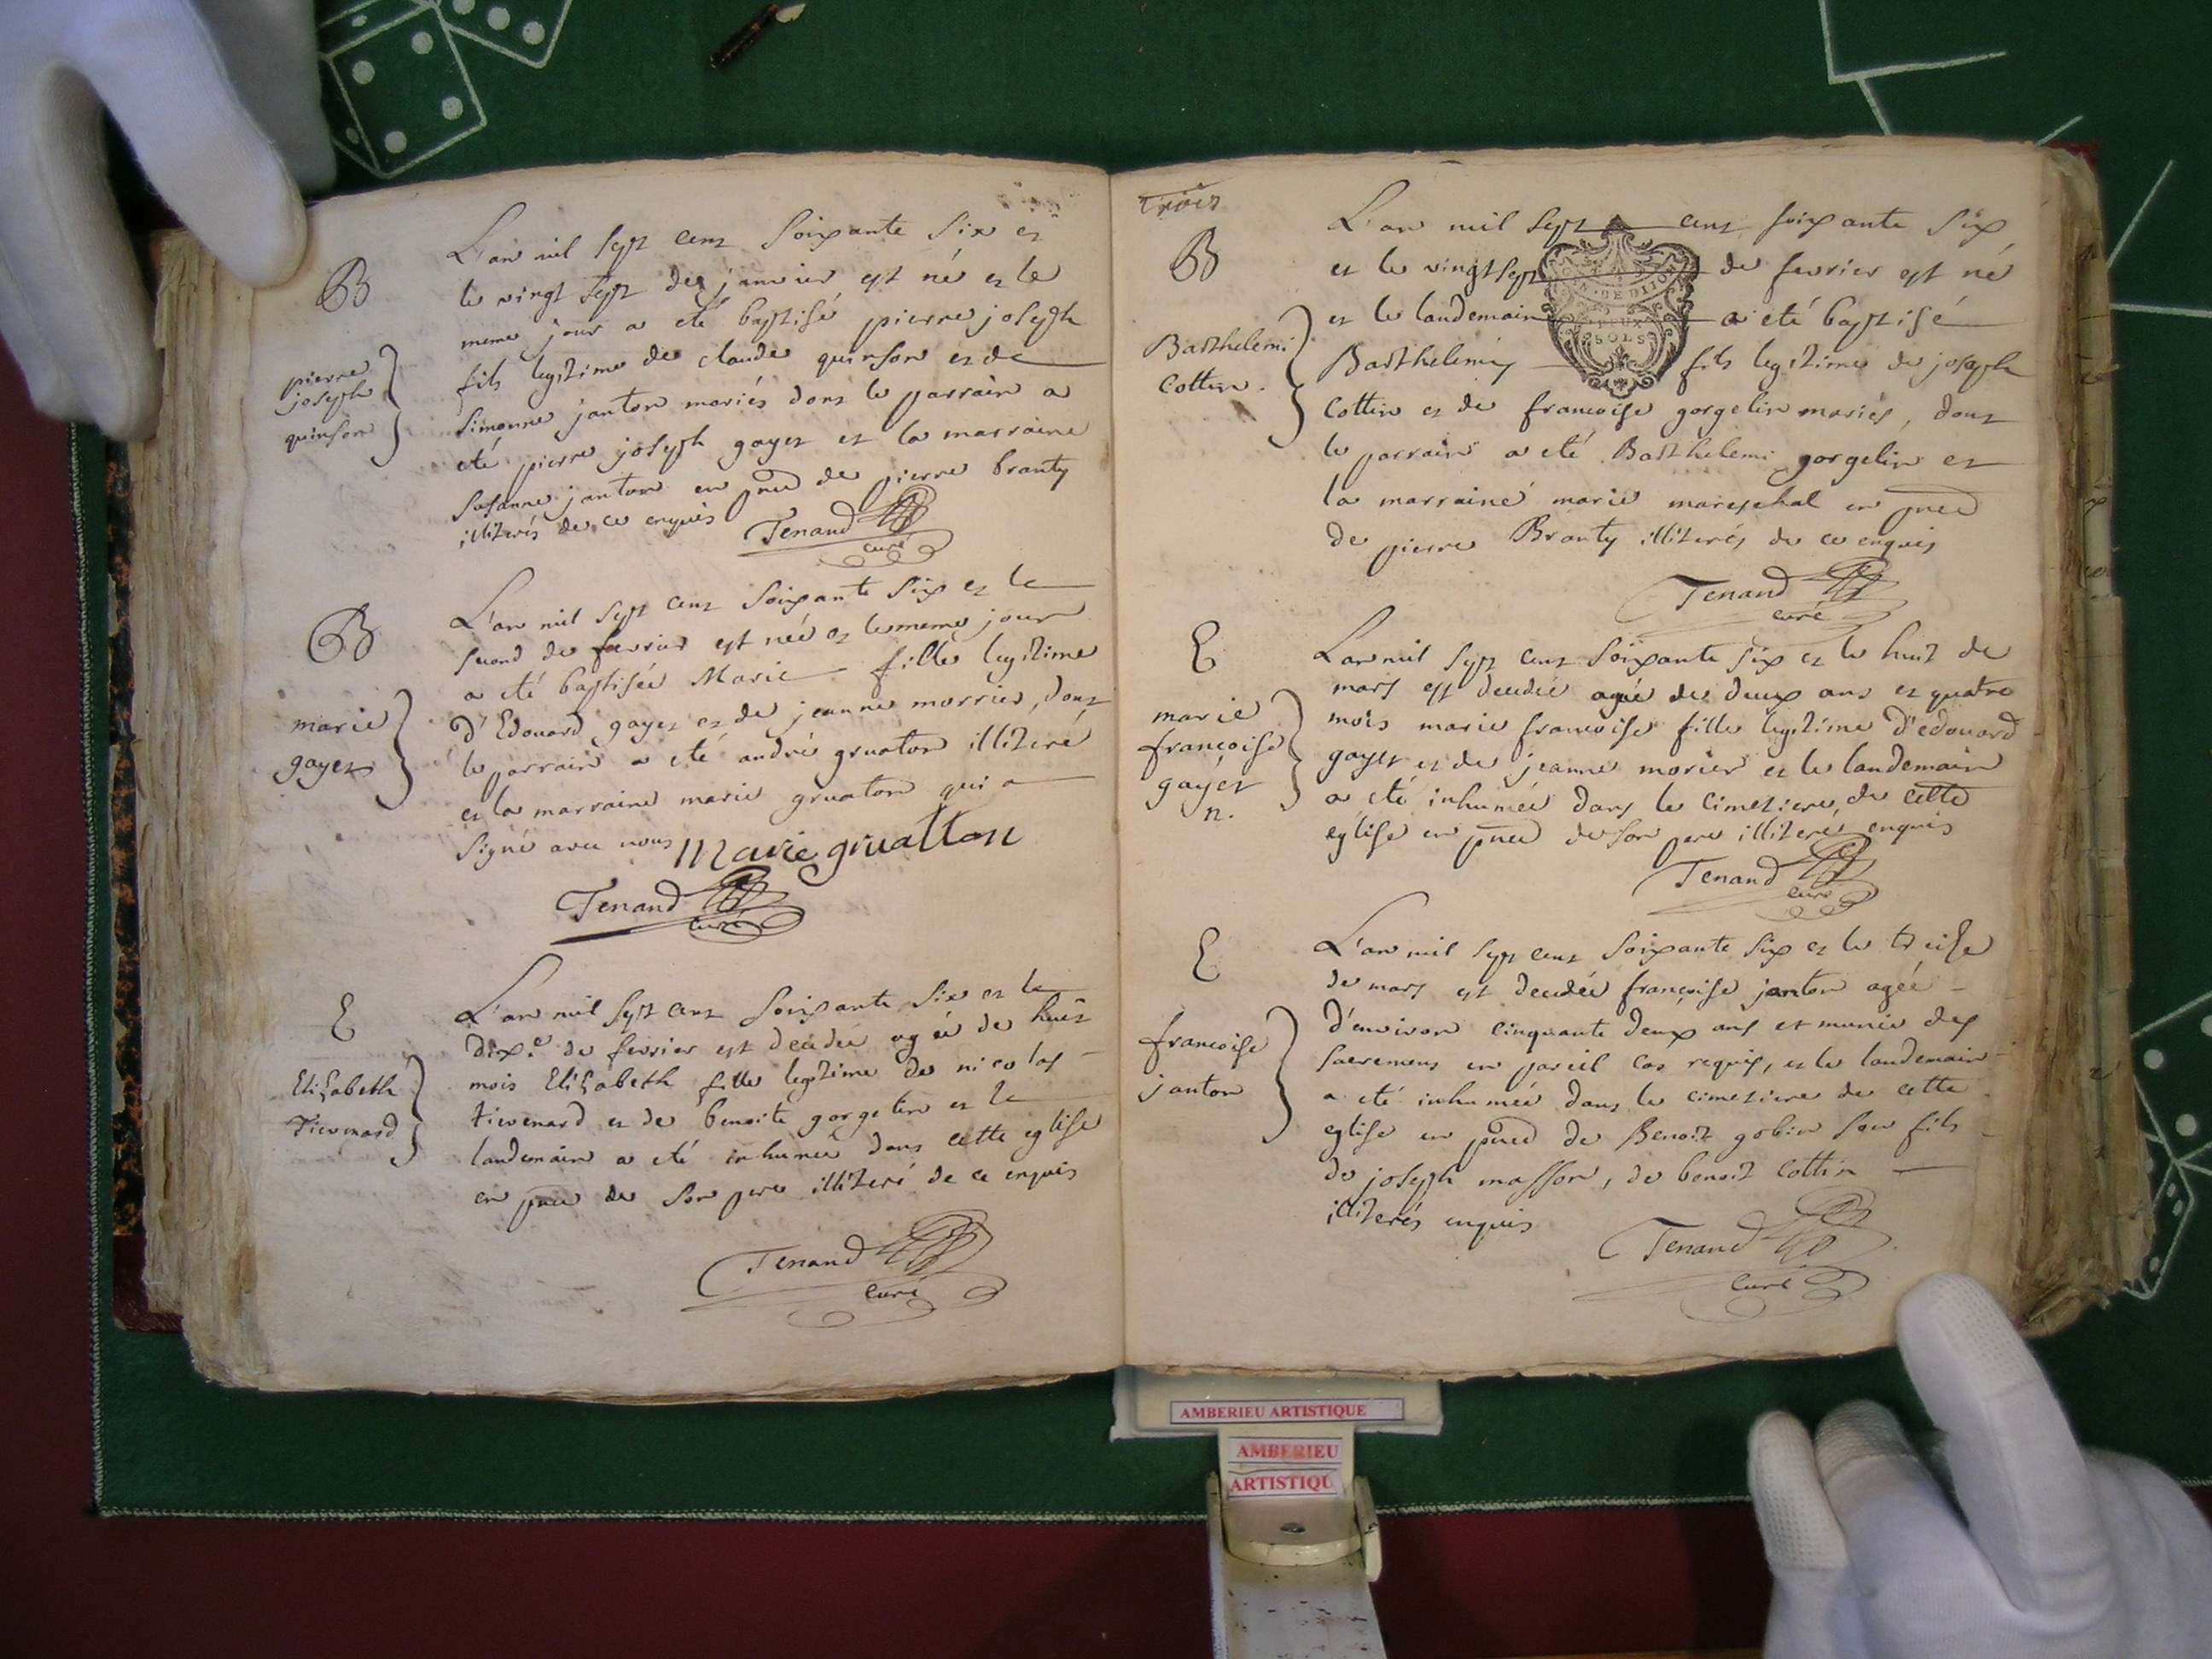 B
pierre
joseph
quinson
L'an mil sept cent soixante six et
le vingt sept de janvier est né et le
meme jour a eté baptisé pierre joseph
fils legitime de claude quinson et de
Simonne janton mariés dont le parrain a
eté pierre joseph gayet et la marraine
Susanne janton en pnce de pierre branty
illiterés de ce enquis
Tenand
curé
B
marie
gayet
L'an mil sept cent soixante six et le
second de fevrier est née et le meme jour
a eté baptisée Marie fille legitime
d'Edouard gayet et de jeanne morrier, dont
le parrain a eté andré gruaton illiteré
et la marraine marie gruaton qui a
signé avec nous Marie gruatton
Tenand
curé
E
Elizabeth
Tievenard
L'an mil sept cent soixante six et le
dix.e de fevrier est decedée agée de huit
mois Elizabeth fille legitime de nicolas
tievenard et de benoite gorgelin et le
landemain a eté inhumée dans cette eglise
en pnce de son pere illiteré de ce enquis
Tenand
curé
Trois
B
Barthelemi
Cottin.
L'an mil sept cent soixante six
et le vingt sept de fevrier est né
et le landemain a eté baptisé
Barthelemy fils legitime de joseph
Cottin et de francoise gorgelin mariés, dont
le parrain a eté Barthelemi gorgelin et
la marraine marie mareschal en pnce
de pierre Branty illiterés de ce enquis
DE DIJON
DEUX
SOLS
Tenand
curé
E
marie
françoise
gayet
n.
L'an mil sept cent soixante six et le huit de
mars est decedée agée de deux ans et quatre
mois marie francoise fille legitime d'edouard
gayet et de jeanne morier et le landemain
a eté inhumée dans le cimetiere de cette
eglise en pnce de son pere illiteré enquis
Tenand
curé
E
francoise
janton
L'an mil sept cent soixante six et le treise
de mars est decedée françoise janton agée
d'environ cinquante deux ans et munie des
sacremens en pareil cas requis, et le landemain
a eté inhumée dans le cimetiere de cette
eglise en pnce de Benoit gobin son fils
de joseph masson, de benoit Cottin
illiterés enquis
Tenand
curé
AMBERIEU ARTISTIQUE
AMBERIEU
ARTISTIQU